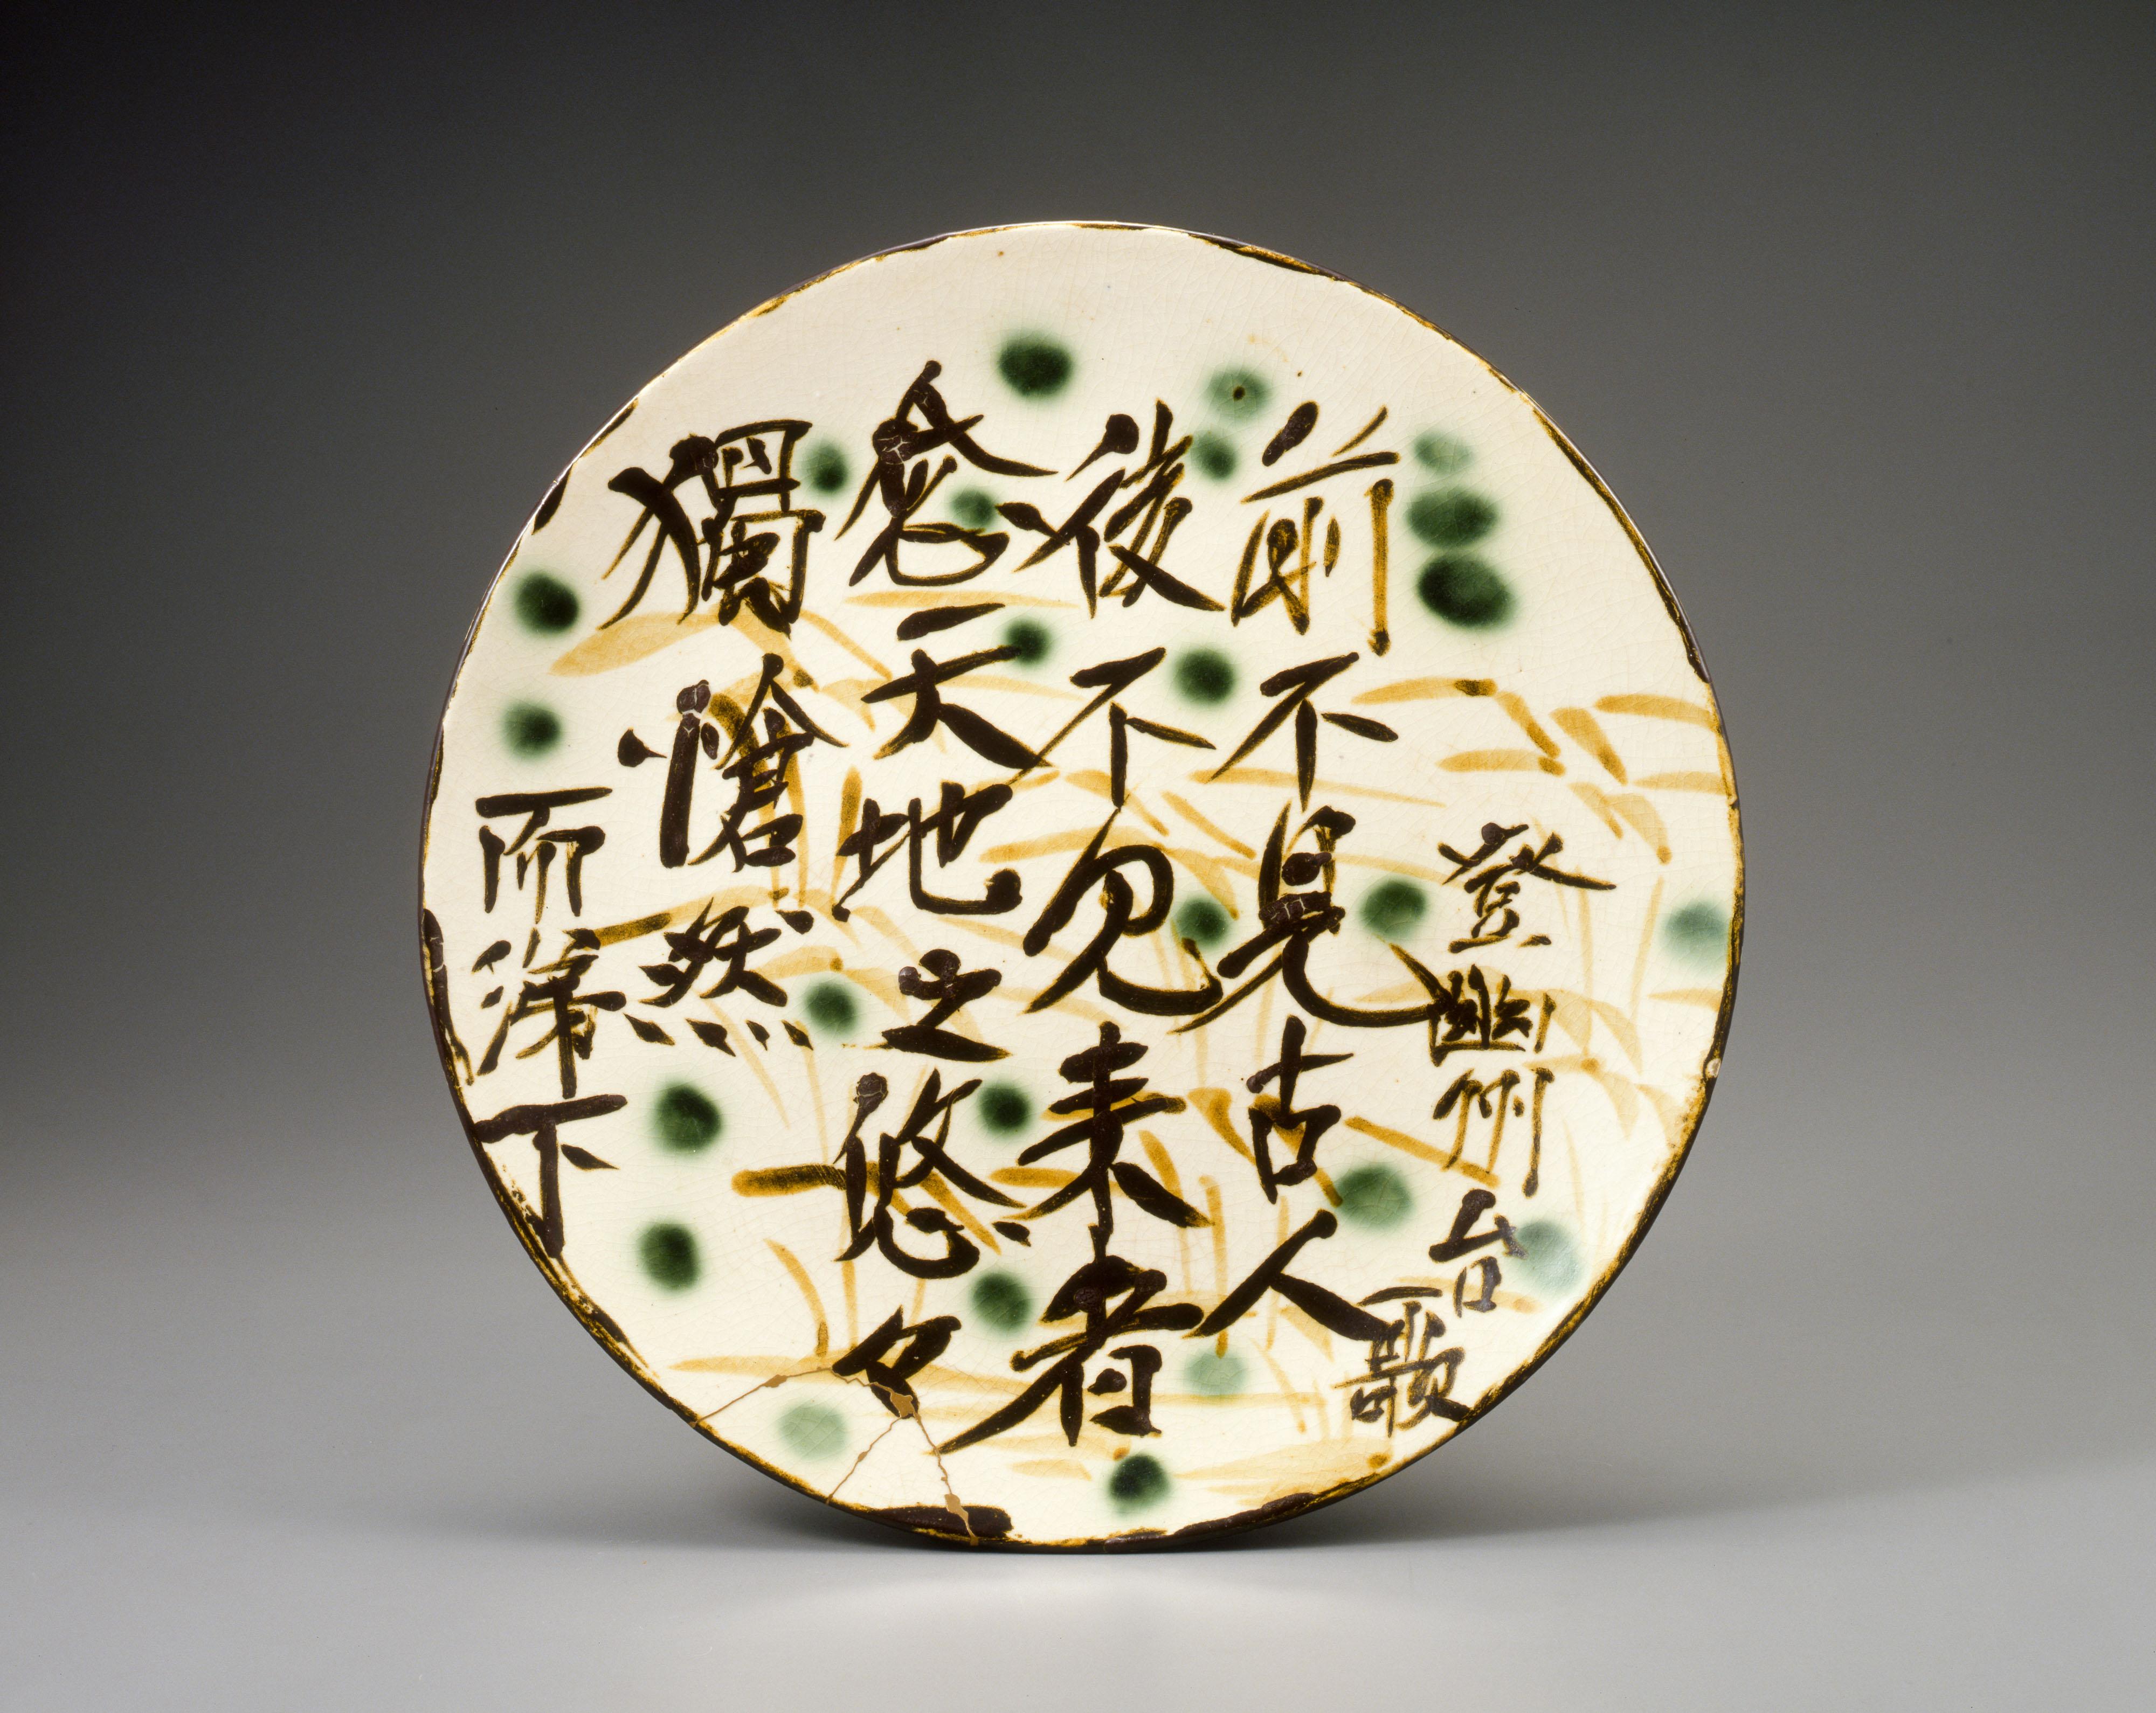 登幽州台歌
前不見古人
後不見来者
念天地之悠々
獨愴然
而涕下